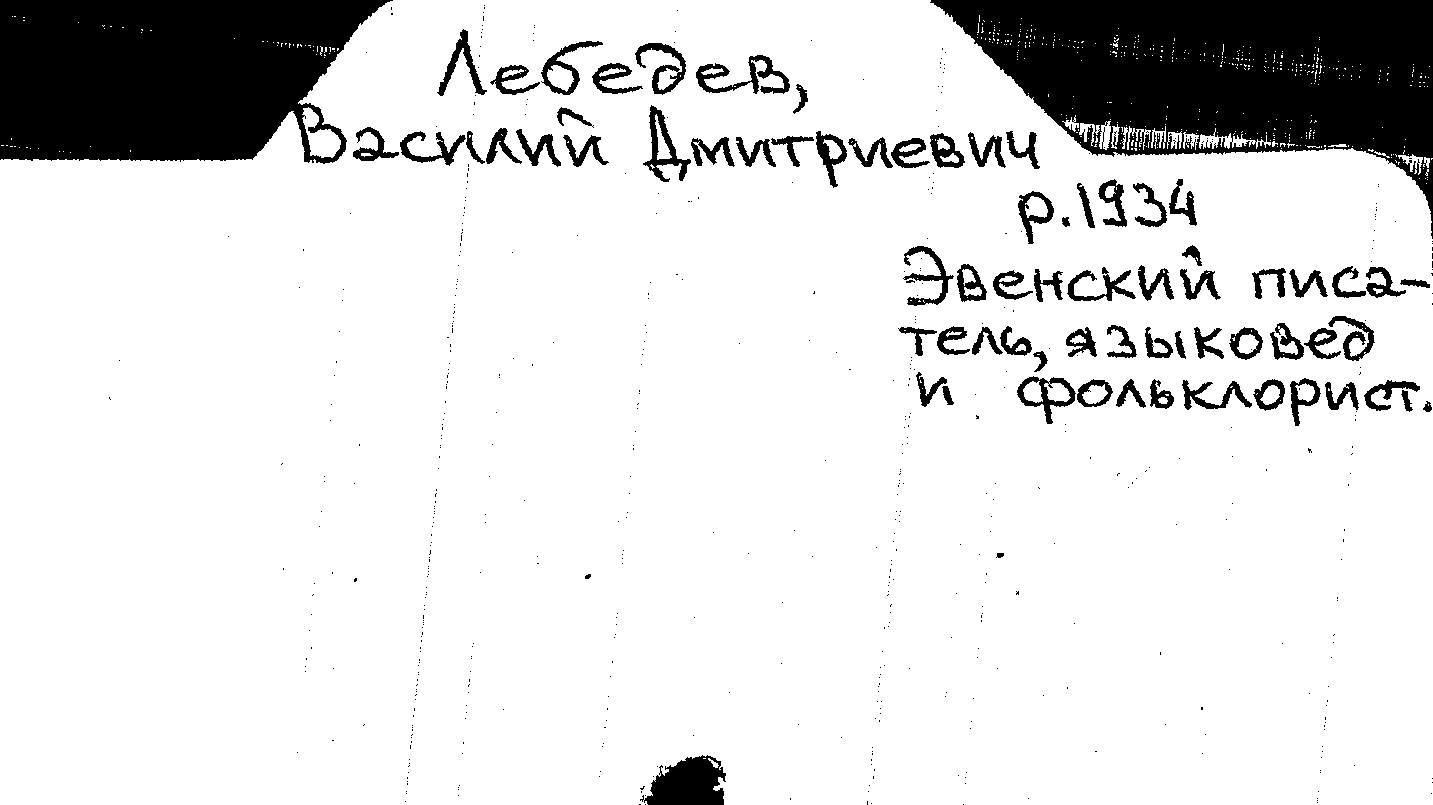 Лебедев,
Василий Дмитриевич
р. 1934
Эвенский писа-
тель, языковед
и фольклорист.